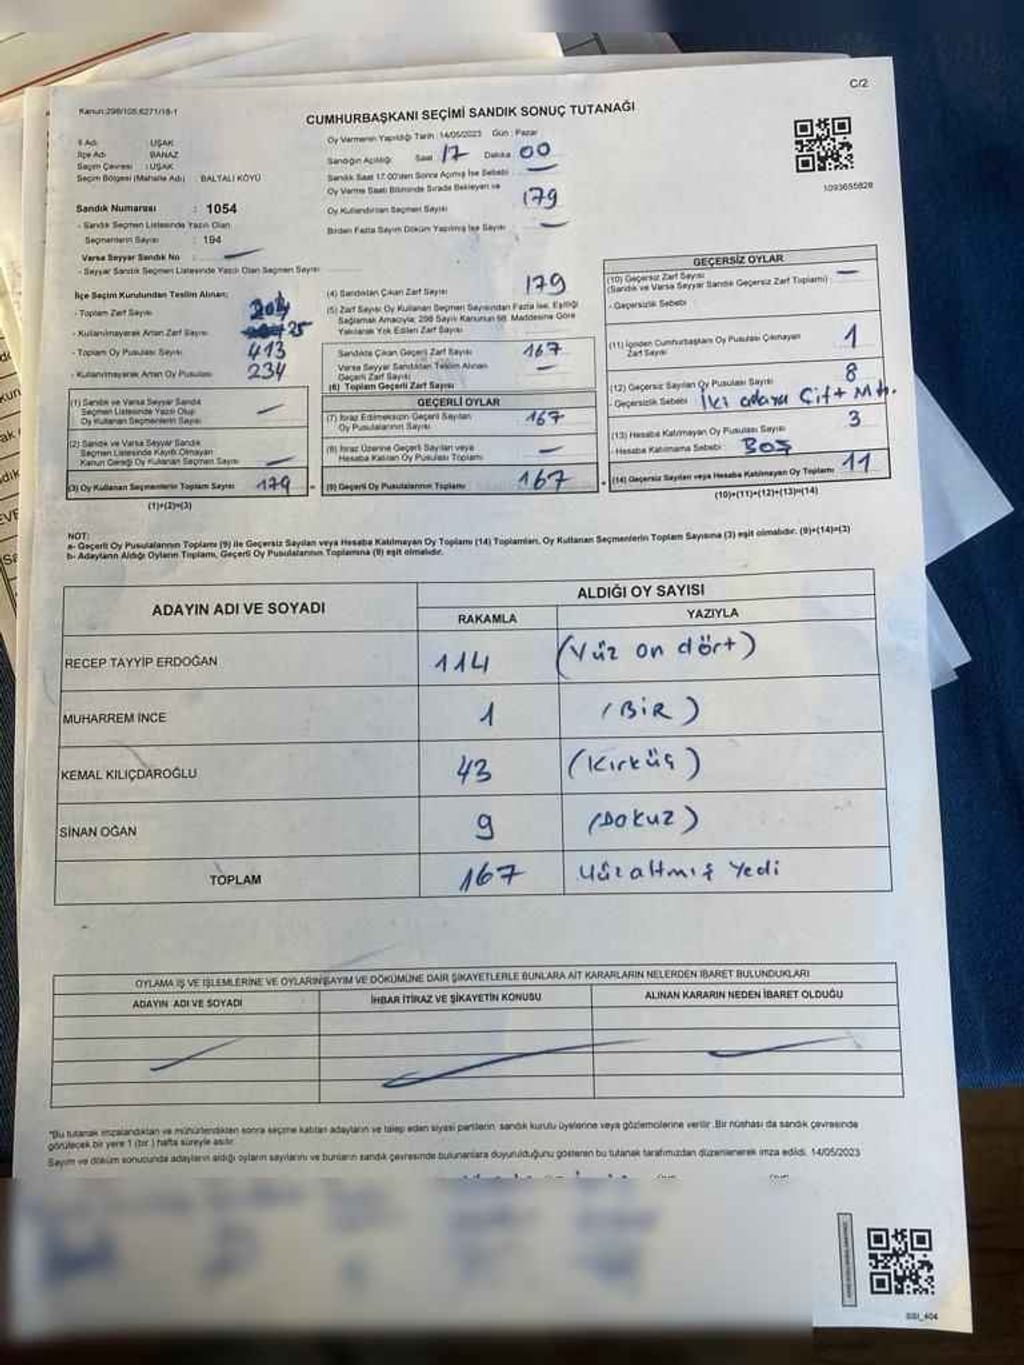 C/2
Kanun:298/105;6271/18-1
CUMHURBAŞKANI SEÇİMİ SANDIK SONUÇ TUTANAĞI
İl Adı : UŞAK
İlçe Adı : BANAZ
Seçim Çevresi : UŞAK
Seçim Bölgesi (Mahalle Adı) : BALTALI KÖYÜ
Sandık Numarası : 1054
- Sandık Seçmen Listesinde Yazılı Olan
Seçmenlerin Sayısı : 194
Varsa Seyyar Sandık No :
- Seyyar Sandık Seçmen Listesinde Yazılı Olan Seçmen Sayısı :
Oy Vermenin Yapıldığı Tarih :14/05/2023 Gün : Pazar
Sandığın Açıldığı Saat 17 Dakika 00
Sandık Saat 17:00'den Sonra Açılmış İse Sebebi
Oy Verme Saati Bitiminde Sırada Bekleyen ve
Oy Kullandırılan Seçmen Sayısı 179
Birden Fazla Sayım Döküm Yapılmış İse Sayısı —
1093655828
İlçe Seçim Kurulundan Teslim Alınan;
- Toplam Zarf Sayısı : 204
- Kullanılmayarak Artan Zarf Sayısı : 25
- Toplam Oy Pusulası Sayısı : 413
- Kullanılmayarak Artan Oy Pusulası : 234
(1) Sandık ve Varsa Seyyar Sandık
Seçmen Listesinde Yazılı Olup
Oy Kullanan Seçmenlerin Sayısı —
(2) Sandık ve Varsa Seyyar Sandık
Seçmen Listesinde Kayıtlı Olmayan
Kanun Gereği Oy Kullanan Seçmen Sayısı —
(3) Oy Kullanan Seçmenlerin Toplam Sayısı 179
(1)+(2)=(3)
(4) Sandıktan Çıkan Zarf Sayısı 179
(5) Zarf Sayısı Oy Kullanan Seçmen Sayısından Fazla İse, Eşitliği
Sağlamak Amacıyla; 298 Sayılı Kanunun 98. Maddesine Göre
Yakılarak Yok Edilen Zarf Sayısı
Sandıkta Çıkan Geçerli Zarf Sayısı 167
Varsa Seyyar Sandıktan Teslim Alınan
Geçerli Zarf Sayısı —
(6) Toplam Geçerli Zarf Sayısı
GEÇERLİ OYLAR
(7) İtiraz Edilmeksizin Geçerli Sayılan
Oy Pusulalarının Sayısı 167
(8) İtiraz Üzerine Geçerli Sayılan veya
Hesaba Katılan Oy Pusulası Toplamı —
(9) Geçerli Oy Pusulalarının Toplamı 167
GEÇERSİZ OYLAR
(10) Geçersiz Zarf Sayısı
(Sandık ve Varsa Seyyar Sandık Geçersiz Zarf Toplamı) —
- Geçersizlik Sebebi
(11) İçinden Cumhurbaşkanı Oy Pusulası Çıkmayan
Zarf Sayısı 1
(12) Geçersiz Sayılan Oy Pusulası Sayısı 8
- Geçersizlik Sebebi İki adaya Çift
(13) Hesaba Katılmayan Oy Pusulası Sayısı 3
- Hesaba Katılmama Sebebi BOŞ
(14) Geçersiz Sayılan veya Hesaba Katılmayan Oy Toplamı 11
(10)+(11)+(12)+(13)=(14)
NOT:
a- Geçerli Oy Pusulalarının Toplamı (9) ile Geçersiz Sayılan veya Hesaba Katılmayan Oy Toplamı (14) Toplamları, Oy Kullanan Seçmenlerin Toplam Sayısına (3) eşit olmalıdır. (9)+(14)=(3)
b- Adayların Aldığı Oyların Toplamı, Geçerli Oy Pusulalarının Toplamına (9) eşit olmalıdır.
ADAYIN ADI VE SOYADI
ALDIĞI OY SAYISI
RAKAMLA YAZIYLA
RECEP TAYYİP ERDOĞAN 114 (Yüz on dört)
MUHARREM İNCE 1 (BİR)
KEMAL KILIÇDAROĞLU 43 (Kırküç)
SİNAN OĞAN 9 (Dokuz)
TOPLAM 167 Yüzaltmış Yedi
OYLAMA İŞ VE İŞLEMLERİNE VE OYLARIN SAYIM VE DÖKÜMÜNE DAİR ŞİKAYETLERLE BUNLARA AİT KARARLARIN NELERDEN İBARET BULUNDUKLARI
ADAYIN ADI VE SOYADI İHBAR İTİRAZ VE ŞİKAYETİN KONUSU ALINAN KARARIN NEDEN İBARET OLDUĞU
*Bu tutanak imzalandıktan ve mühürlendikten sonra seçime katılan adayların ve talep eden siyasi partilerin, sandık kurulu üyelerine veya gözlemcilerine verilir. Bir nüshası da sandık çevresinde
görülecek bir yere 1 (bir) hafta süreyle asılır.
Sayım ve döküm sonucunda adayların aldığı oyların sayılarını ve bunların sandık çevresinde bulunanlara duyurulduğunu gösteren bu tutanak tarafımızdan düzenlenerek imza edildi. 14/05/2023
SSI_404